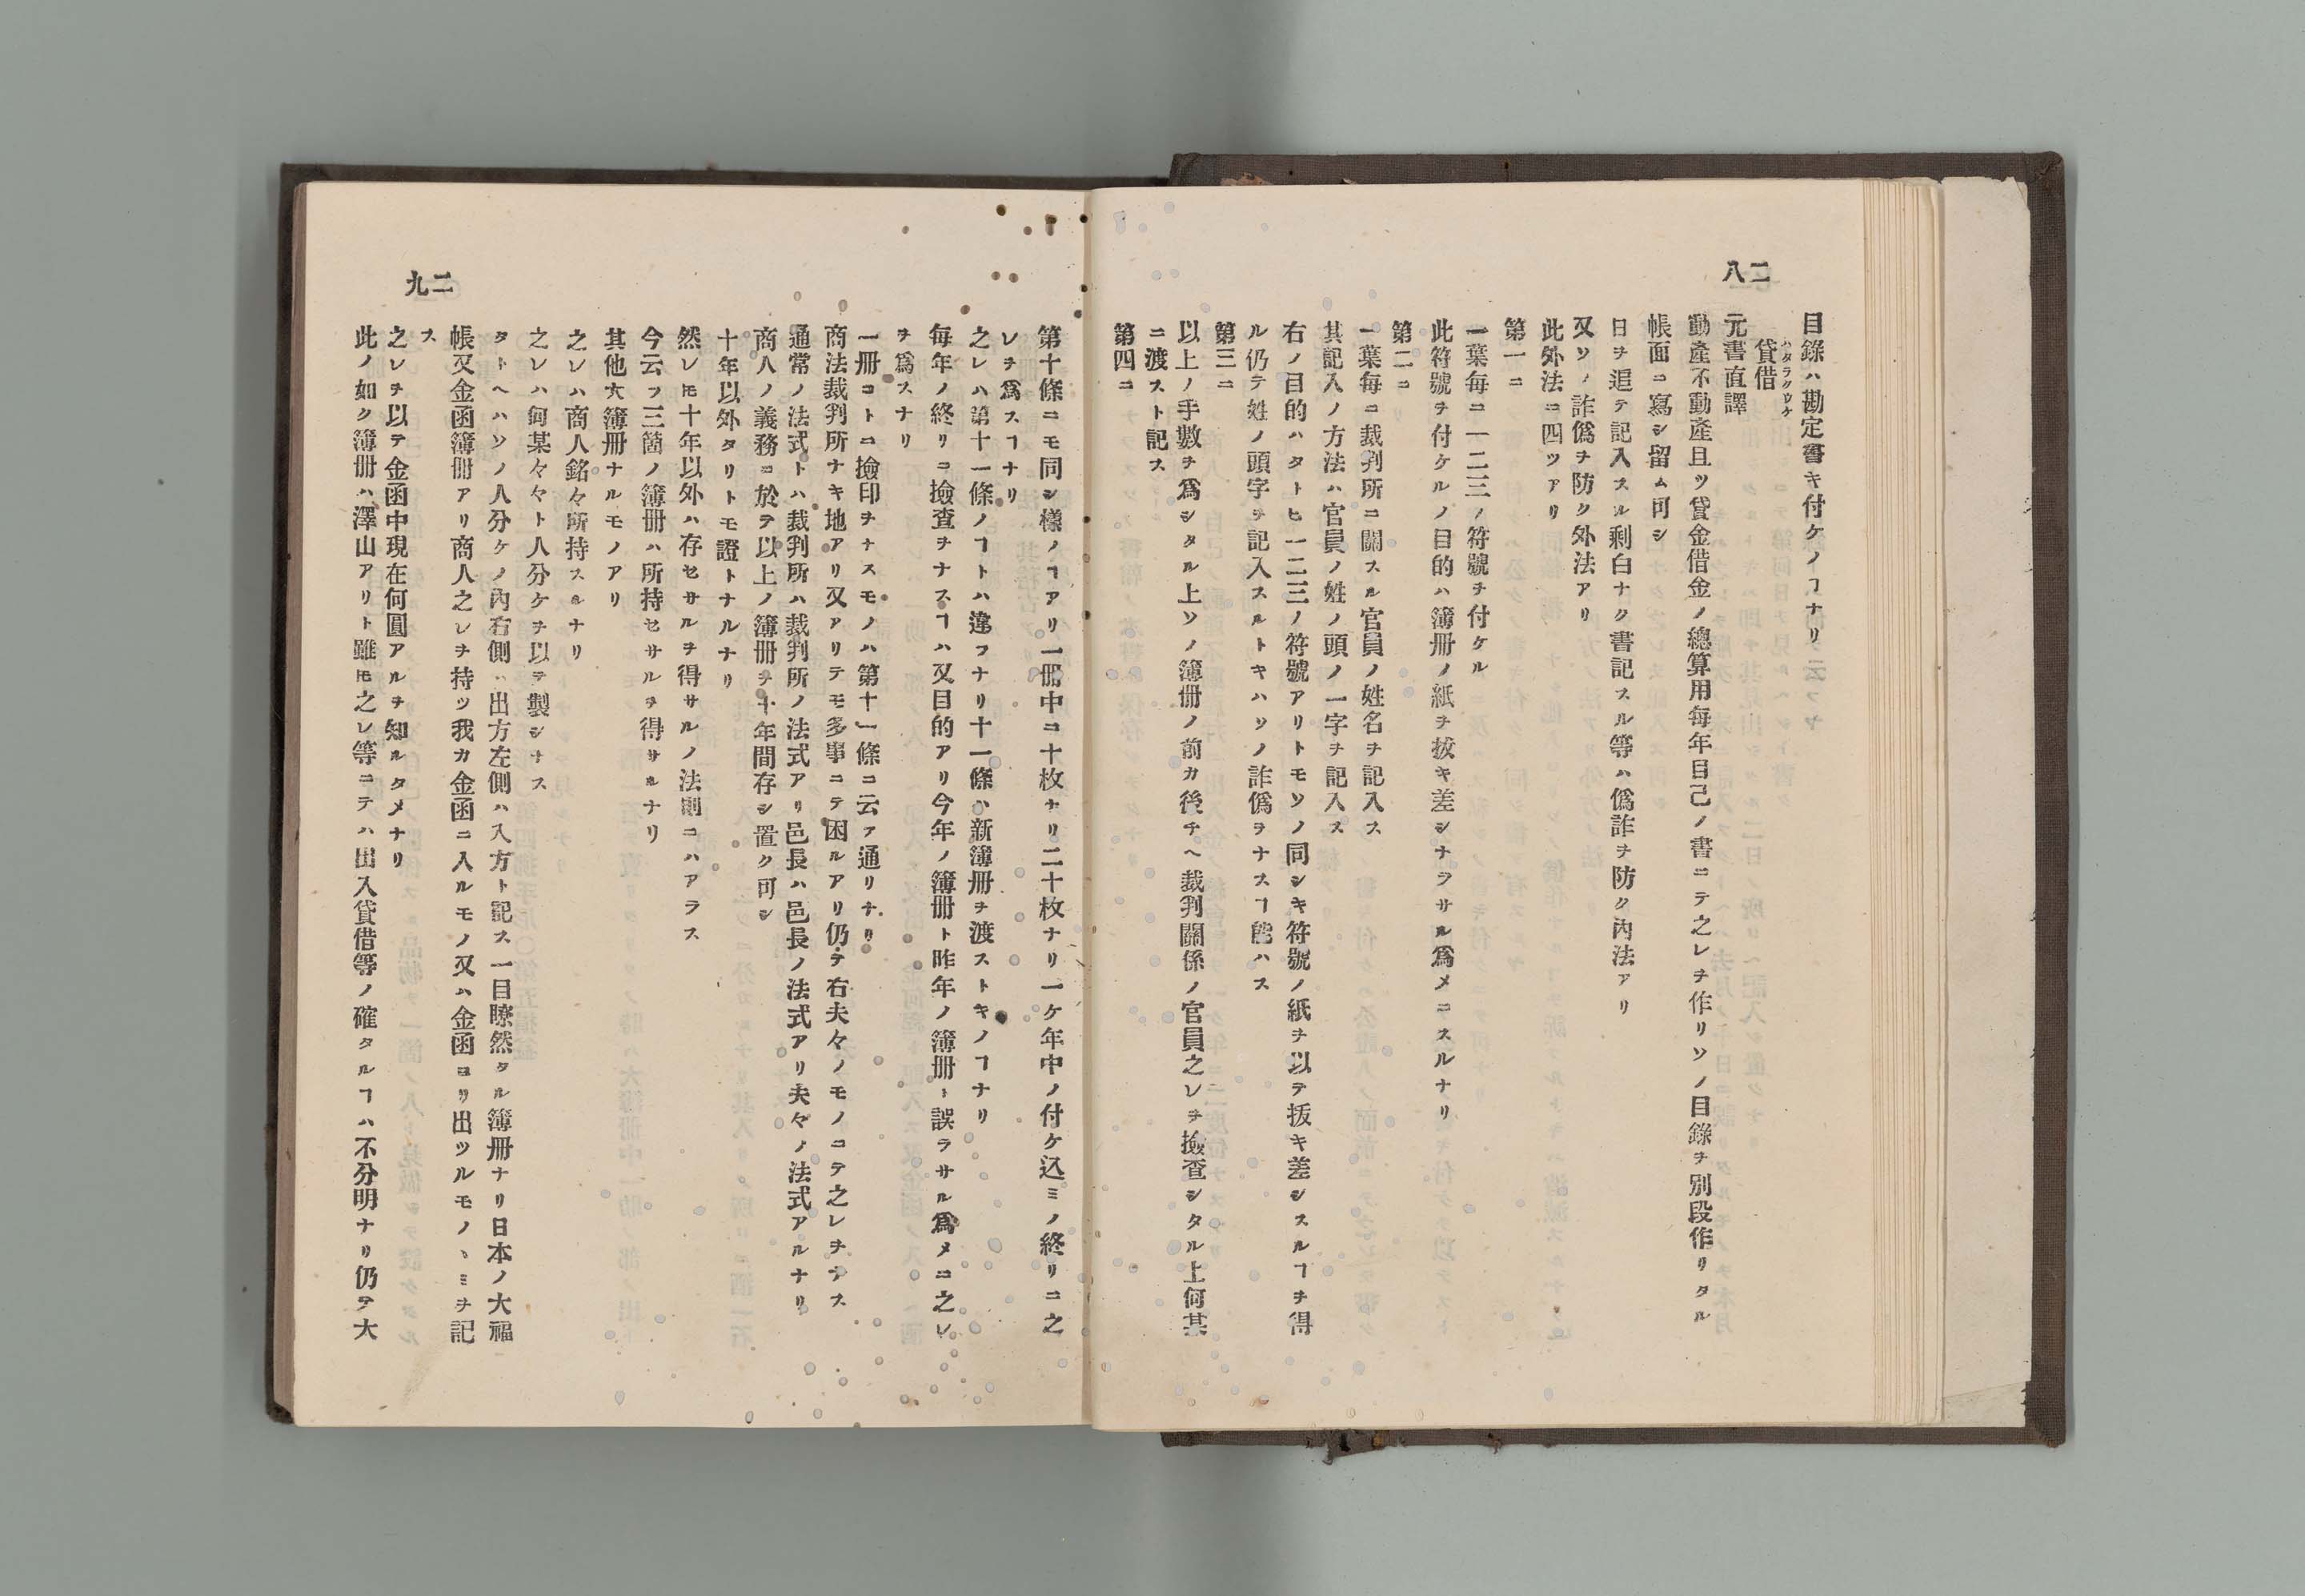 二八
目錄ハ勘定書キ付ケノヿナリ云フヤ
貸借
ハタラクウケ
元書直譯
動產不動產且ツ貸金借金ノ總算用每年自己ノ書ニテ之レヲ作リソノ目錄ヲ別段作リタル
帳面ニ寫シ留ム可シ
日ヲ追テ記入スル剩白ナク書記スル等ハ僞詐ヲ防ク內法アリ
又ソノ詐僞ヲ防ク外法アリ
此外法ニ四ツアリ
第一ニ
一葉每ニ一二三ノ符號ヲ付ケル
此符號ヲ付ケルノ目的ハ簿册ノ紙ヲ拔キ差シナラサル爲メニスルナリ
第二ニ
一葉每ニ裁判所ニ關スル官員ノ姓名ヲ記入ス
其記入ノ方法ハ官員ノ姓ノ頭ノ一字ヲ記入ス
右ノ目的ハタトヒ一二三ノ符號アリトモソノ同シキ符號ノ紙ヲ以テ拔キ差シスルヿヲ得
ル仍テ姓ノ頭字ヲ記入スルトキハソノ詐僞ヲナスヿ能ハス
第三ニ
以上ノ手數ヲ爲シタル上ソノ簿册ノ前カ後チヘ裁判關係ノ官員之レヲ撿查シタル上何某
ニ渡スト記ス
第四ニ
二九
第十條ニモ同シ樣ノヿアリ一册中ニ十枚ナリ二十枚ナリ一ケ年中ノ付ケ込ミノ終リニ之
レヲ爲スヿナリ
之レハ第十一條ノヿトハ違フナリ十一條ハ新簿册ヲ渡ストキノヿナリ
每年ノ終リニ撿查ヲナスヿハ又目的アリ今年ノ簿册ト昨年ノ簿册ト誤ラサル爲メニ之レ
ヲ爲スナリ
一册コトニ撿印ヲナスモノハ第十一條ニ云フ通リナリ
商法裁判所ナキ地アリ又アリテモ多事ニテ困ルアリ仍テ右夫々ノモノニテ之レヲナス
通常ノ法式トハ裁判所ハ裁判所ノ法式アリ邑長ハ邑長ノ法式アリ夫々ノ法式アルナリ
商人ノ義務ニ於テ以上ノ簿册ヲ十年間存シ置ク可シ
十年以外タリトモ證トナルナリ
然レ𪜈十年以外ハ存セサルヲ得サルノ法則ニハアラス
今云フ三箇ノ簿册ハ所持セサルヲ得サルナリ
其他大簿册ナルモノアリ
之レハ商人銘々所持スルナリ
之レハ何某々々ト人分ケヲ以テ製シナス
タトヘハソノ人分ケノ內右側ハ出方左側ハ入方ト記ス一目瞭然タル簿册ナリ日本ノ大福
帳又金函簿册アリ商人之レヲ持ツ我カ金函ニ入ルモノ又ハ金函ヨリ出ツルモノヽミヲ記
ス
之レヲ以テ金函中現在何圓アルヲ知ルタメナリ
此ノ如ク簿册ハ澤山アリト雖𪜈之レ等ニテハ出入貸借等ノ確タルヿハ不分明ナリ仍テ大